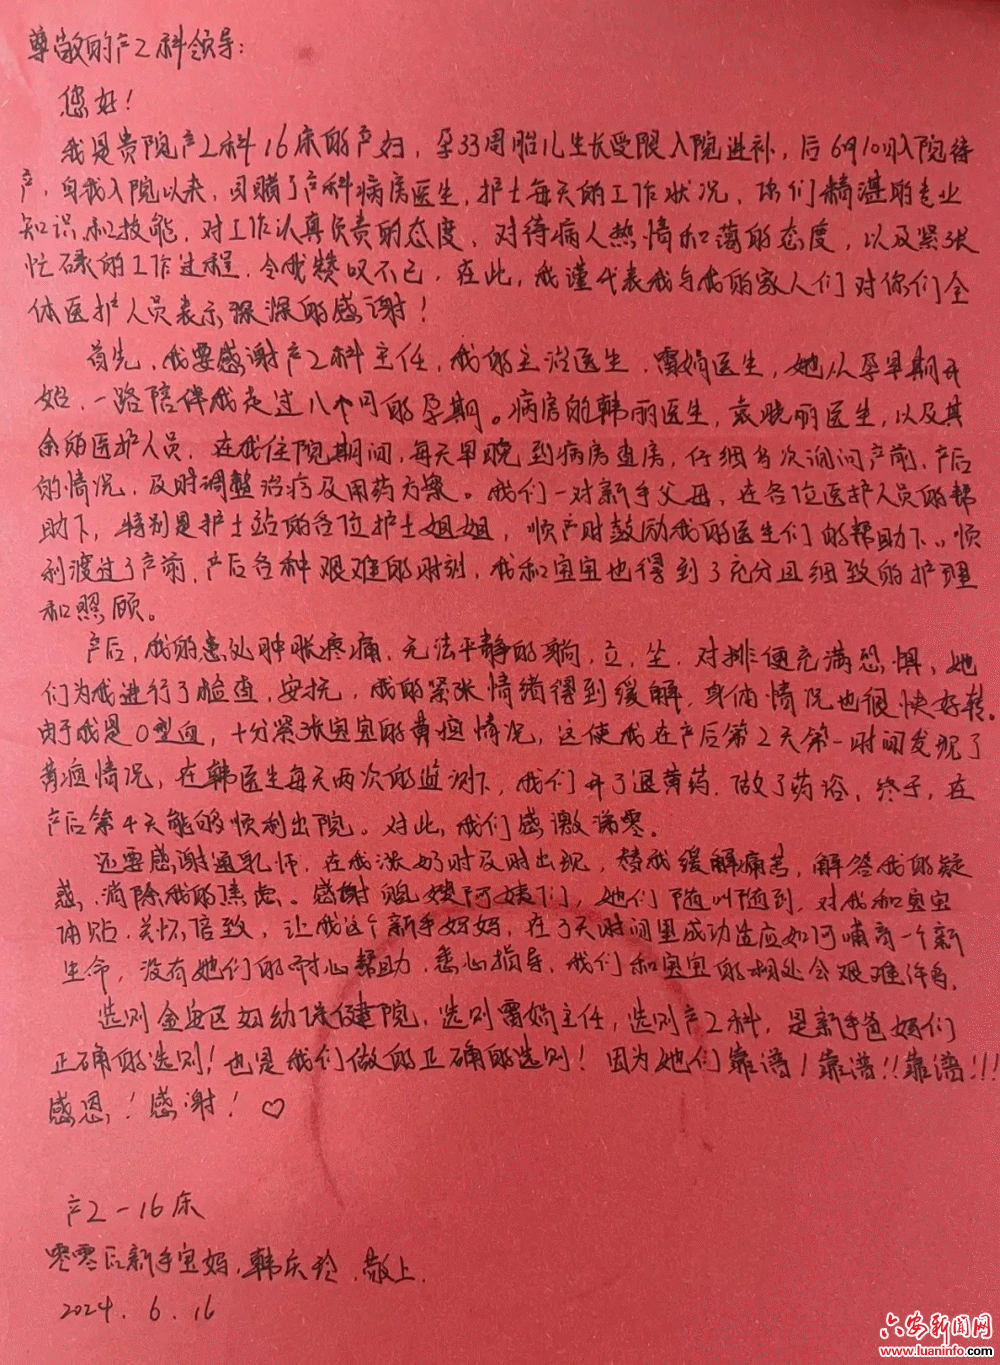 尊敬的产2科领导：
您好！
我是贵院产2科16床的产妇，孕33周胎儿生长受限入院进补，后6月10入院待
产，自我入院以来，目睹了产科病房医生，护士每天的工作状况，你们精湛的专业
知识和技能，对工作认真负责的态度，对待病人热情和蔼的态度，以及紧张
忙碌的工作过程，令我赞叹不已，在此，我谨代表我与我的家人们对你们全
体医护人员表示深深的感谢！
首先，我要感谢产2科主任，我的主治医生，雷娟医生，她从孕早期开
始，一路陪伴我走过八个月的孕期。病房的韩丽医生，袁晓丽医生，以及其
余的医护人员，在我住院期间，每天早晚到病房查房，仔细多次询问产前、产后
的情况，及时调整治疗及用药方案。我们一对新手父母，在各位医护人员的帮
助下，特别是护士站的各位护士姐姐，顺产时鼓励我的医生们的帮助下，顺
利渡过了产前，产后各种艰难的时刻，我和宝宝也得到了充分且细致的护理
和照顾。
产后，我的患处肿胀疼痛，无法平静的躺，立，坐，对排便充满恐惧，她
们为我进行了检查，安抚，我的紧张情绪得到缓解，身体情况也很快好转。
由于我是O型血，十分紧张宝宝的黄疸情况，这使我在产后第2天第一时间发现了
黄疸情况，在韩医生每天两次的监测下，我们开了退黄药，做了药浴，终于，在
产后第4天能够顺利出院。对此，我们感激涕零。
还要感谢通乳师，在我涨奶时及时出现，替我缓解痛苦，解答我的疑
惑，消除我的焦虑。感谢月嫂阿姨们，她们随叫随到，对我和宝宝
体贴，关怀倍致，让我这个新手妈妈，在3天时间里成功适应如何哺育一个新
生命，没有她们的耐心帮助，悉心指导，我们和宝宝的相处会艰难许多，
选则金安区妇幼保健院，选则雷娟主任，选则产2科，是新手爸妈们
正确的选则！也是我们做的正确的选则！因为她们靠谱！靠谱!!靠谱!!!
感恩！感谢！♡
产2-16床
零零后新手宝妈，韩庆玲，敬上.
2024.6.16
六安新闻网
www.luaninfo.com